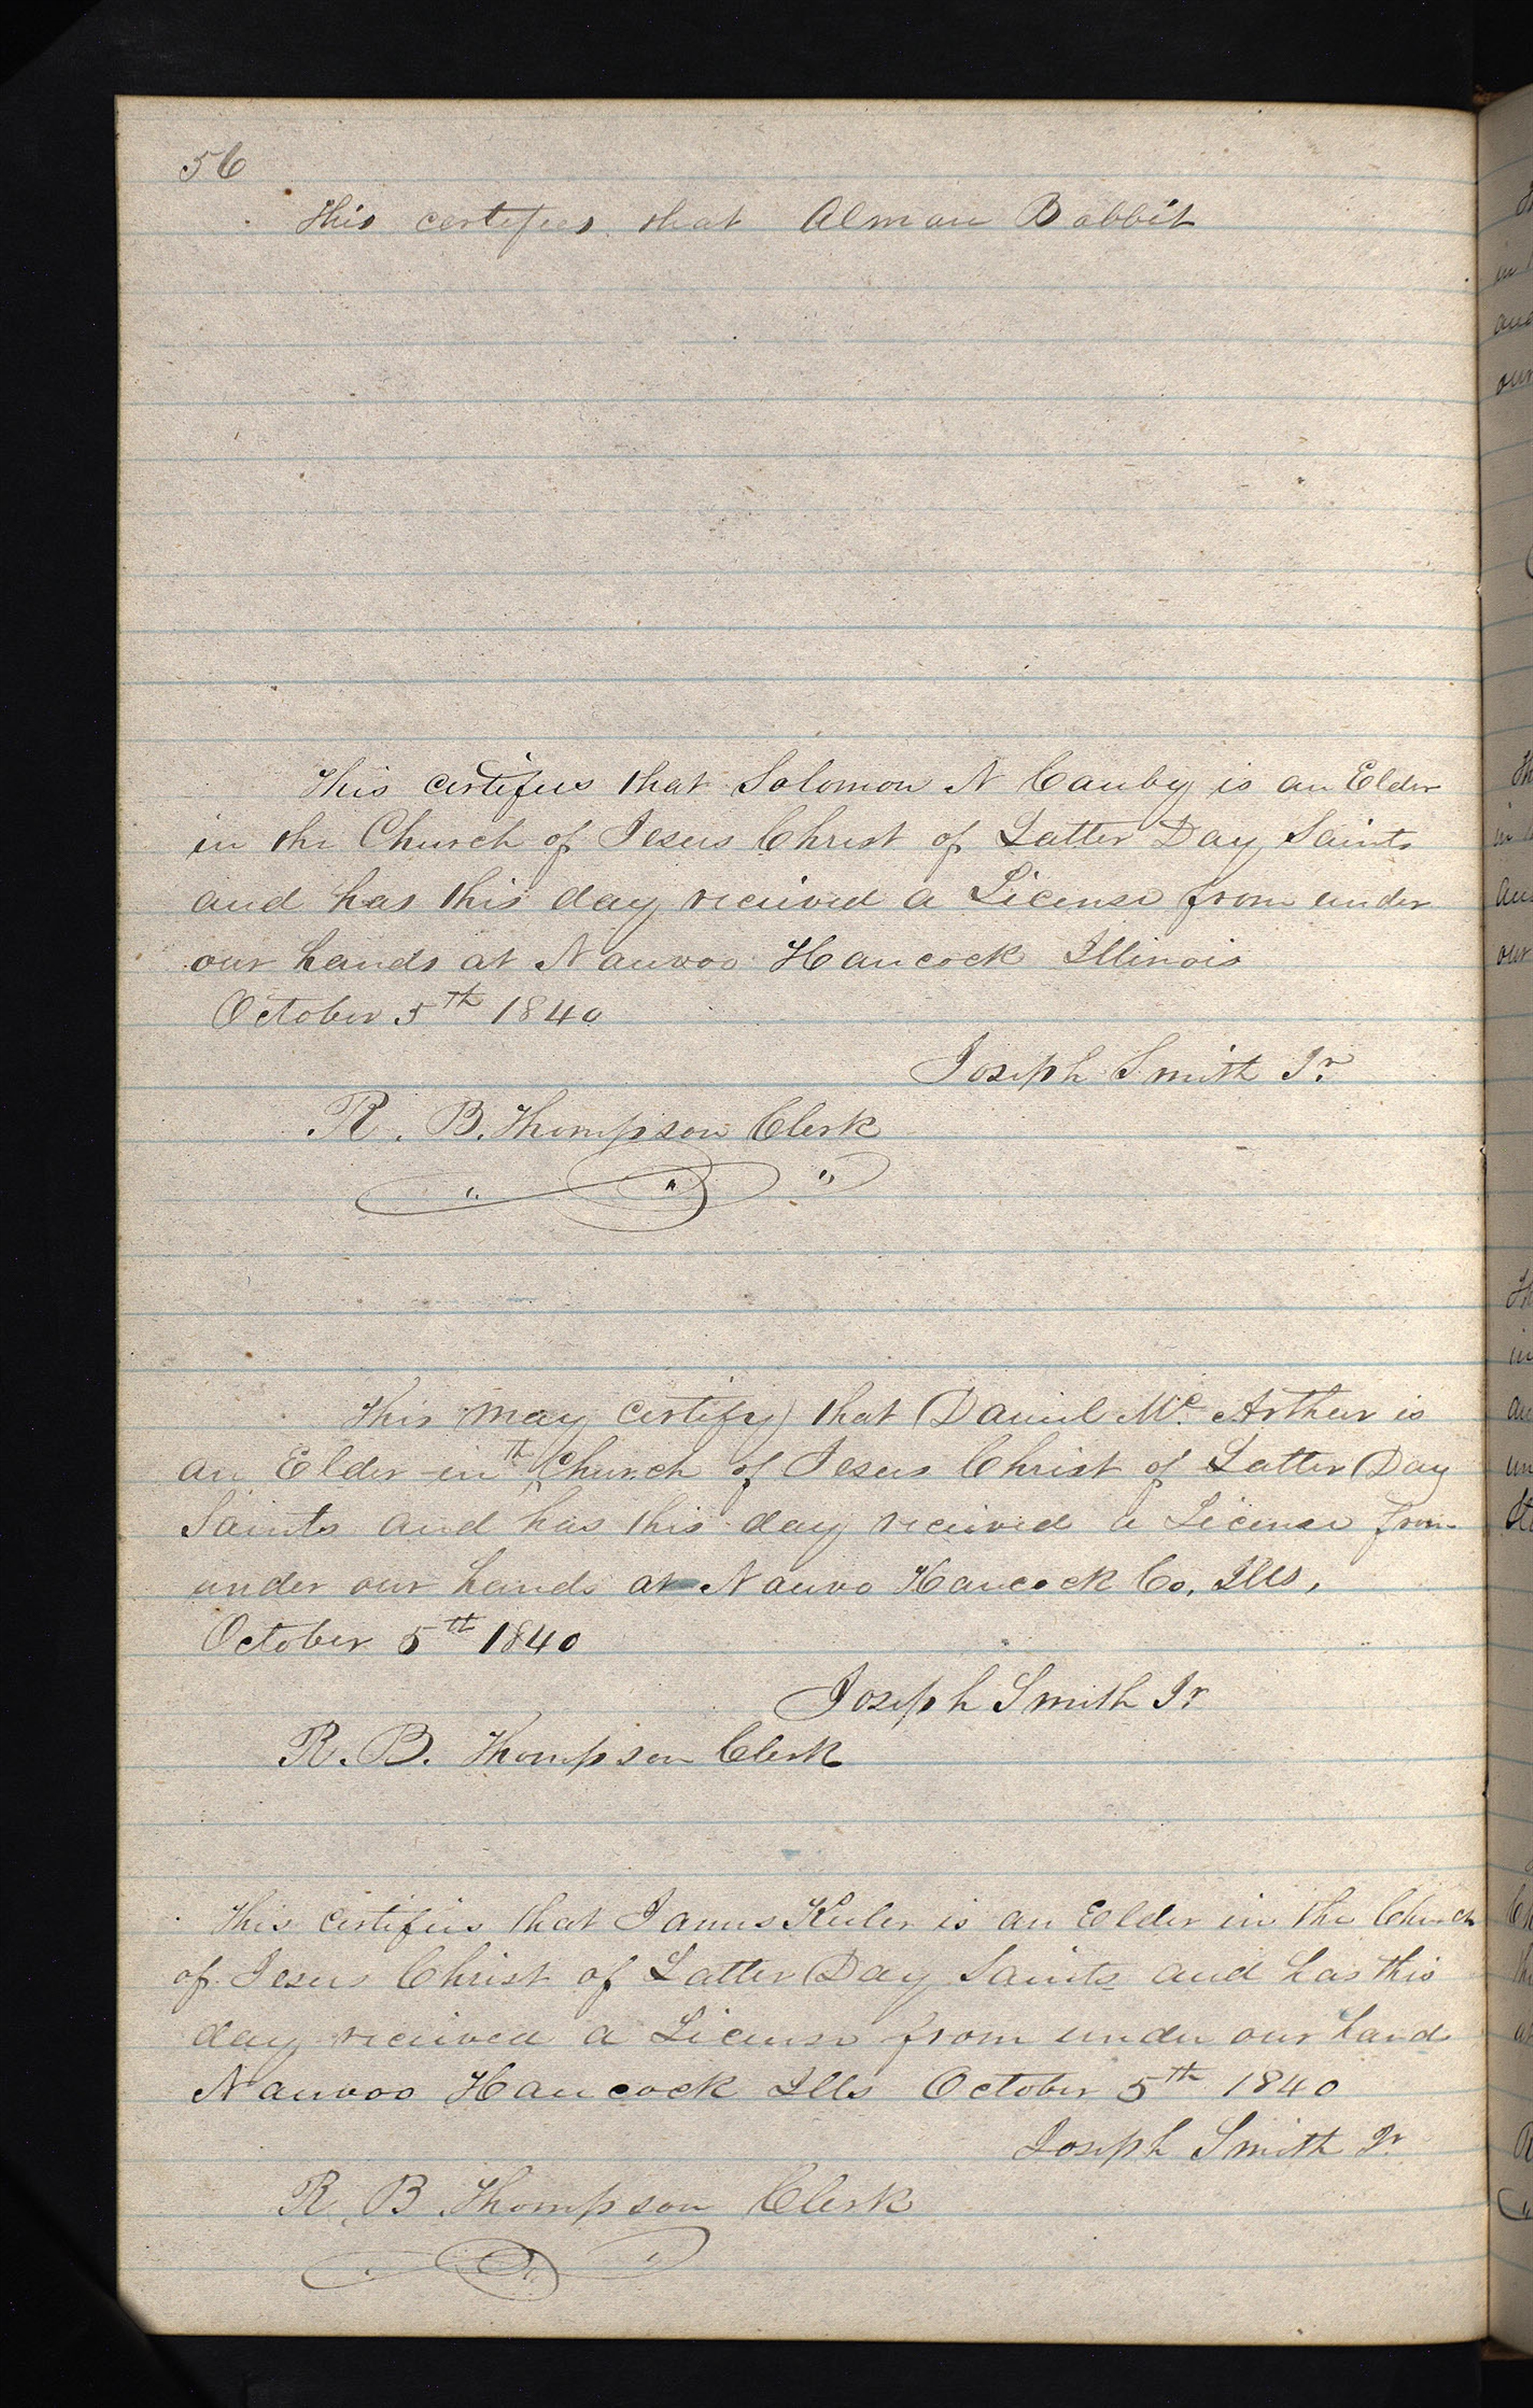 56
This certifies that Alman Babbit
This certifies that Solomon N Canby is an Elder
in the Church of Jesus Christ of Latter Day Saints
and has this day received a License from under
our hands at Nauvoo Hancock Illinois
October 5th 1840
Joseph Smith Jr.
R. B. Thompson Clerk
This may certify that Daniel Mc Arthur is
an Elder in th Church of Jesus Christ of Latter Day
Saints and has this day received a License from
under our hands at Nauvo Hancock Co. Ills,
October 5th 1840
Joseph Smith Jr
R. B. Thompson Clerk
This certifies that James Keeler is an Elder in the Church
of Jesus Christ of Latter Day Saints and has this
day received a License from under our hands
Nauvoo Hancock Ills October 5th 1840
Joseph Smith Jr.
R. B. Thompson Clerk